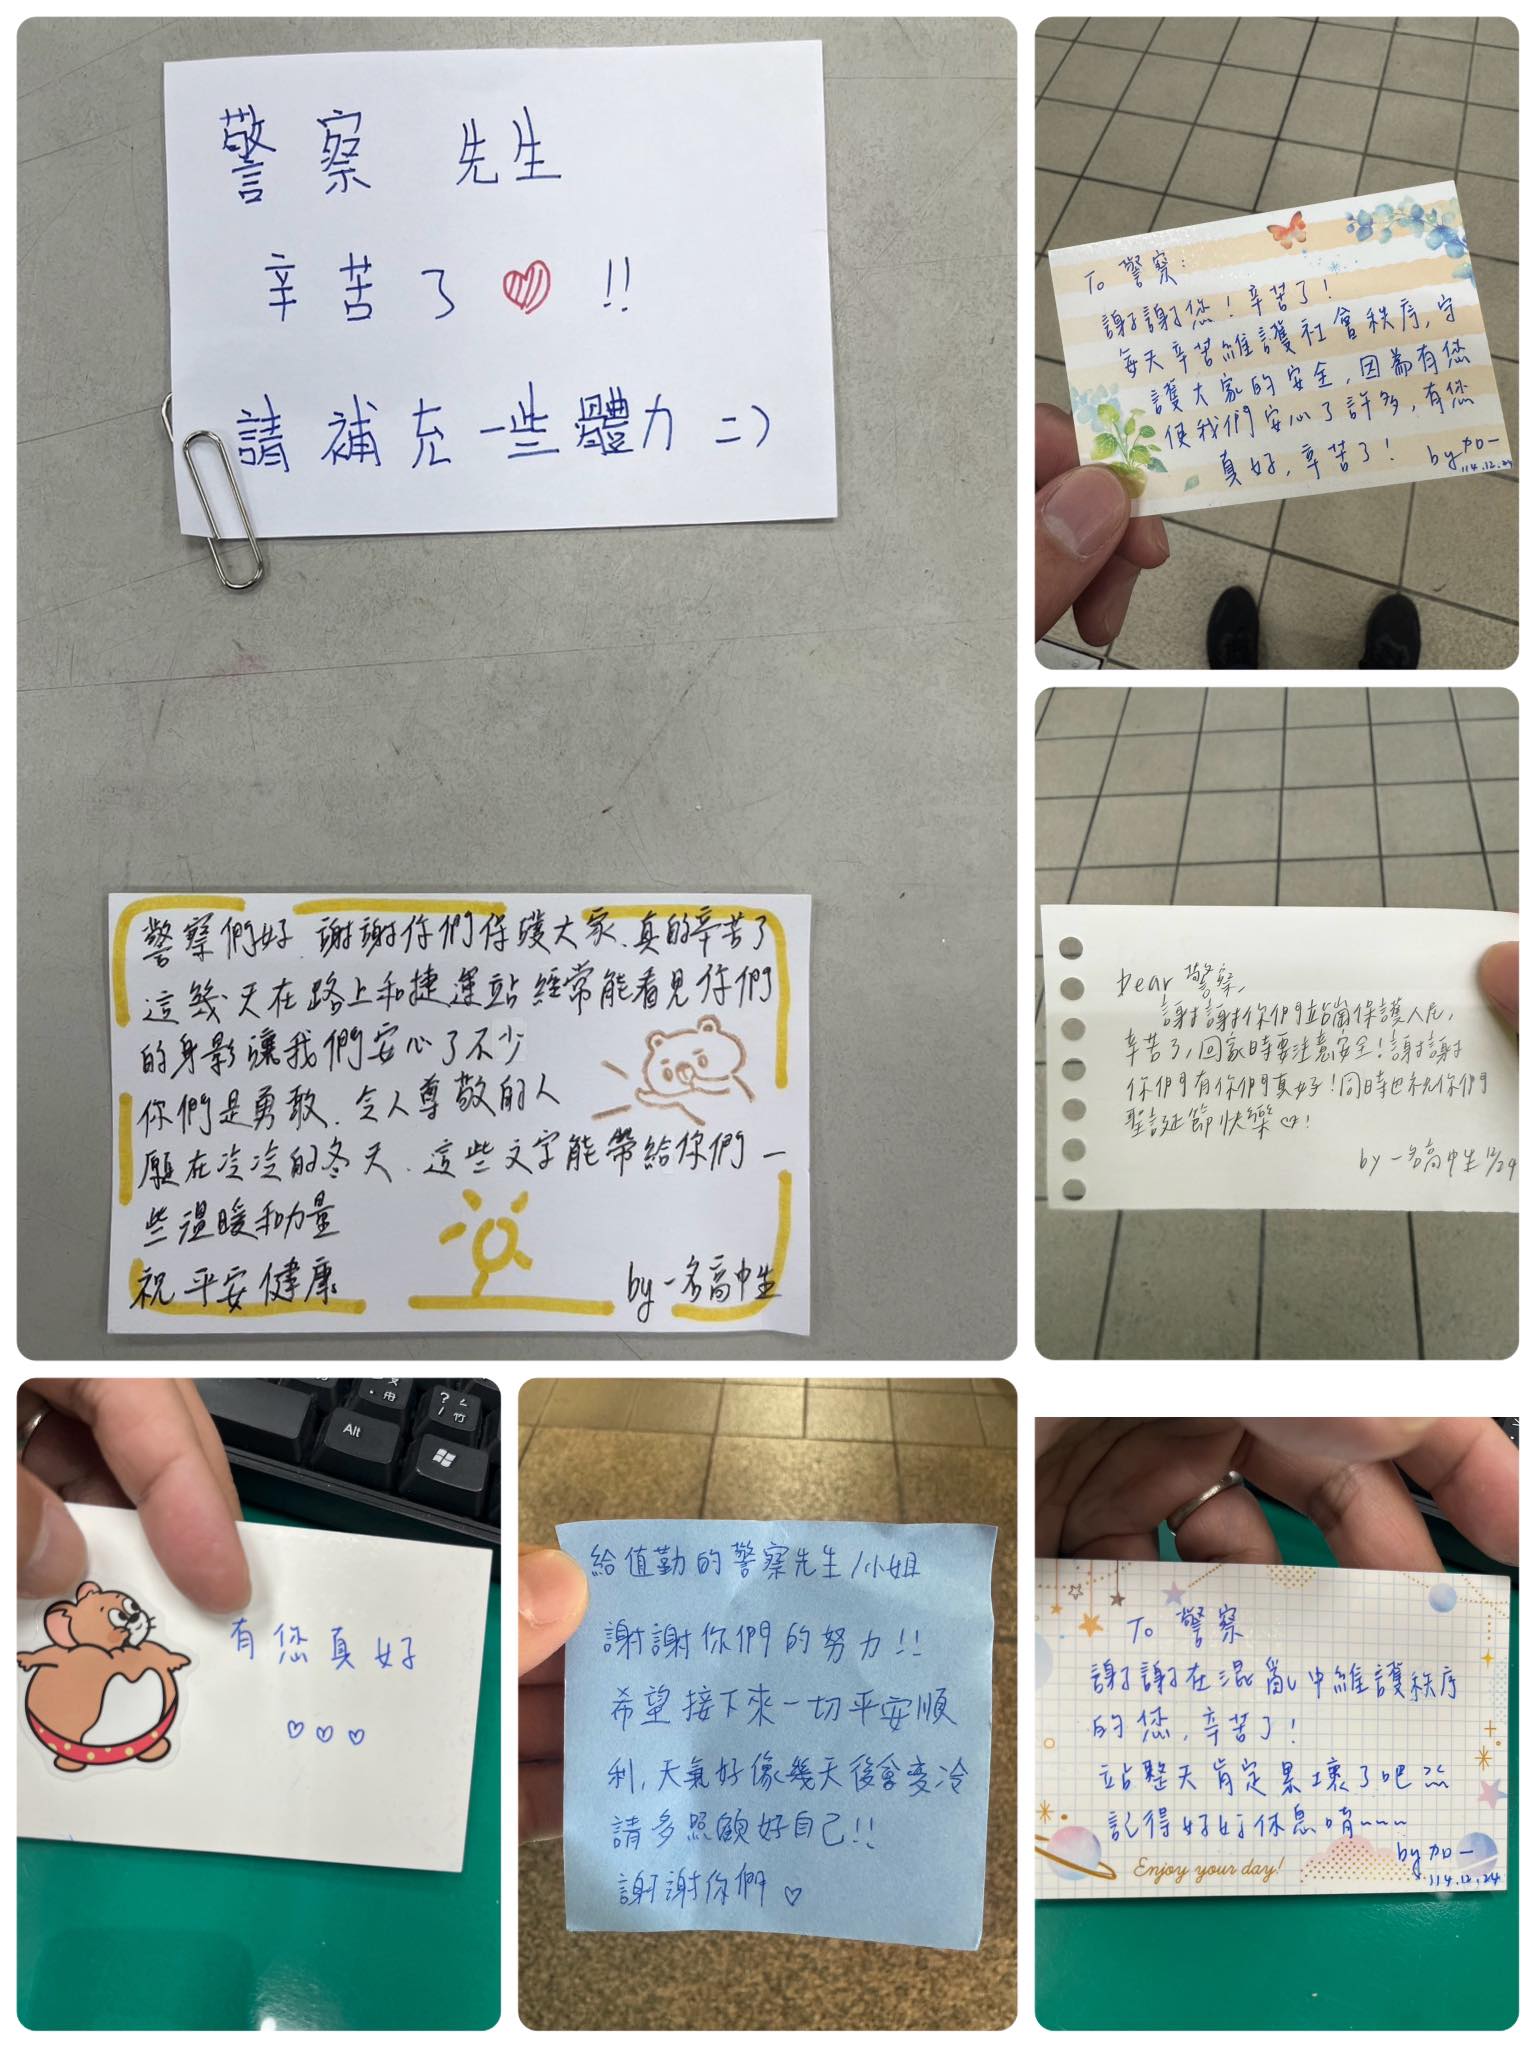 警察 先生
辛苦了 ♥ !!
請補充一些體力 =)
警察們好、謝謝你們保護大家、真的辛苦了
這幾天在路上和捷運站經常能看見你們
的身影讓我們安心了不少
你們是勇敢、令人尊敬的人
願在冷冷的冬天、這些文字能帶給你們一
些溫暖和力量
祝平安健康
by 一名高中生
To 警察:
謝謝您!辛苦了!
每天辛苦維護社會秩序,守
護大家的安全,因為有您
使我們安心了許多,有您
真好,辛苦了!
by 加一
114.12.24
Dear 警察,
謝謝你們站崗保護人民,
辛苦了,回家時要注意安全!謝謝
你們有你們真好!同時也祝你們
聖誕節快樂♡!
by 一名高中生 12/24
Alt
有您真好
♡♡♡
給值勤的警察先生/小姐
謝謝你們的努力!!
希望接下來一切平安順
利,天氣好像幾天後會變冷
請多照顧好自己!!
謝謝你們♡
To 警察
謝謝在混亂中維護秩序
的您,辛苦了!
站整天肯定累壞了吧
記得好好休息唷~~~
by 加一
114.12.24
Enjoy your day!